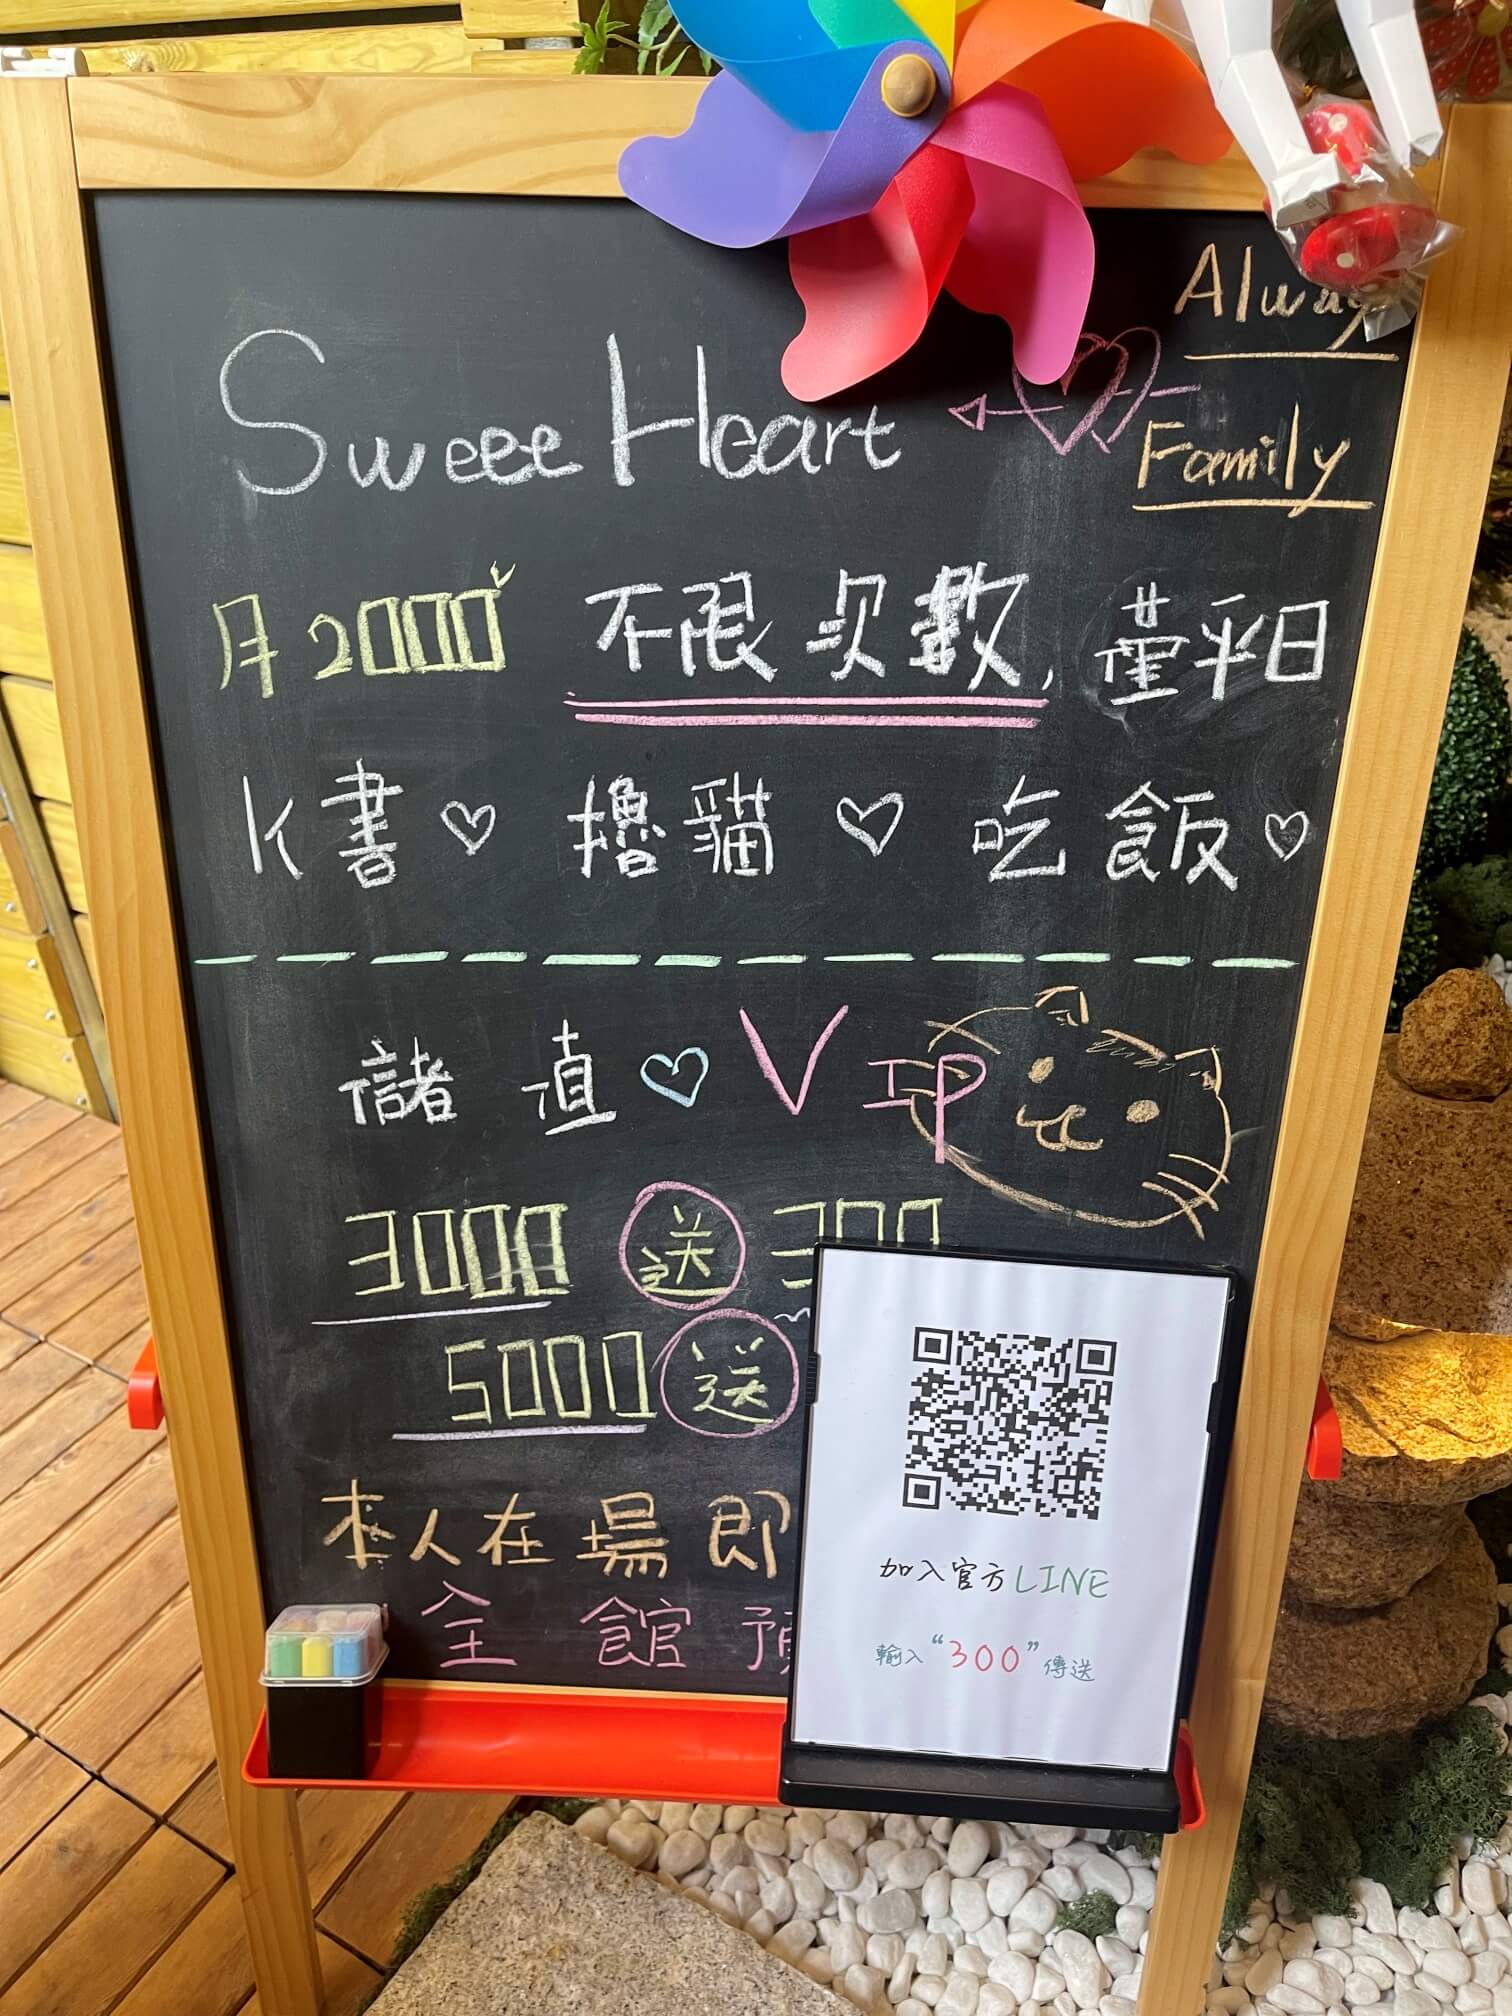 Always
Sweee Heart
Family
月2000 不限次數, 僅平日
K書♡ 擼貓♡ 吃飯♡
儲值♡VIP
3000 送 300
5000 送
本人在場即
全館預
加入官方LINE
輸入“300”傳送